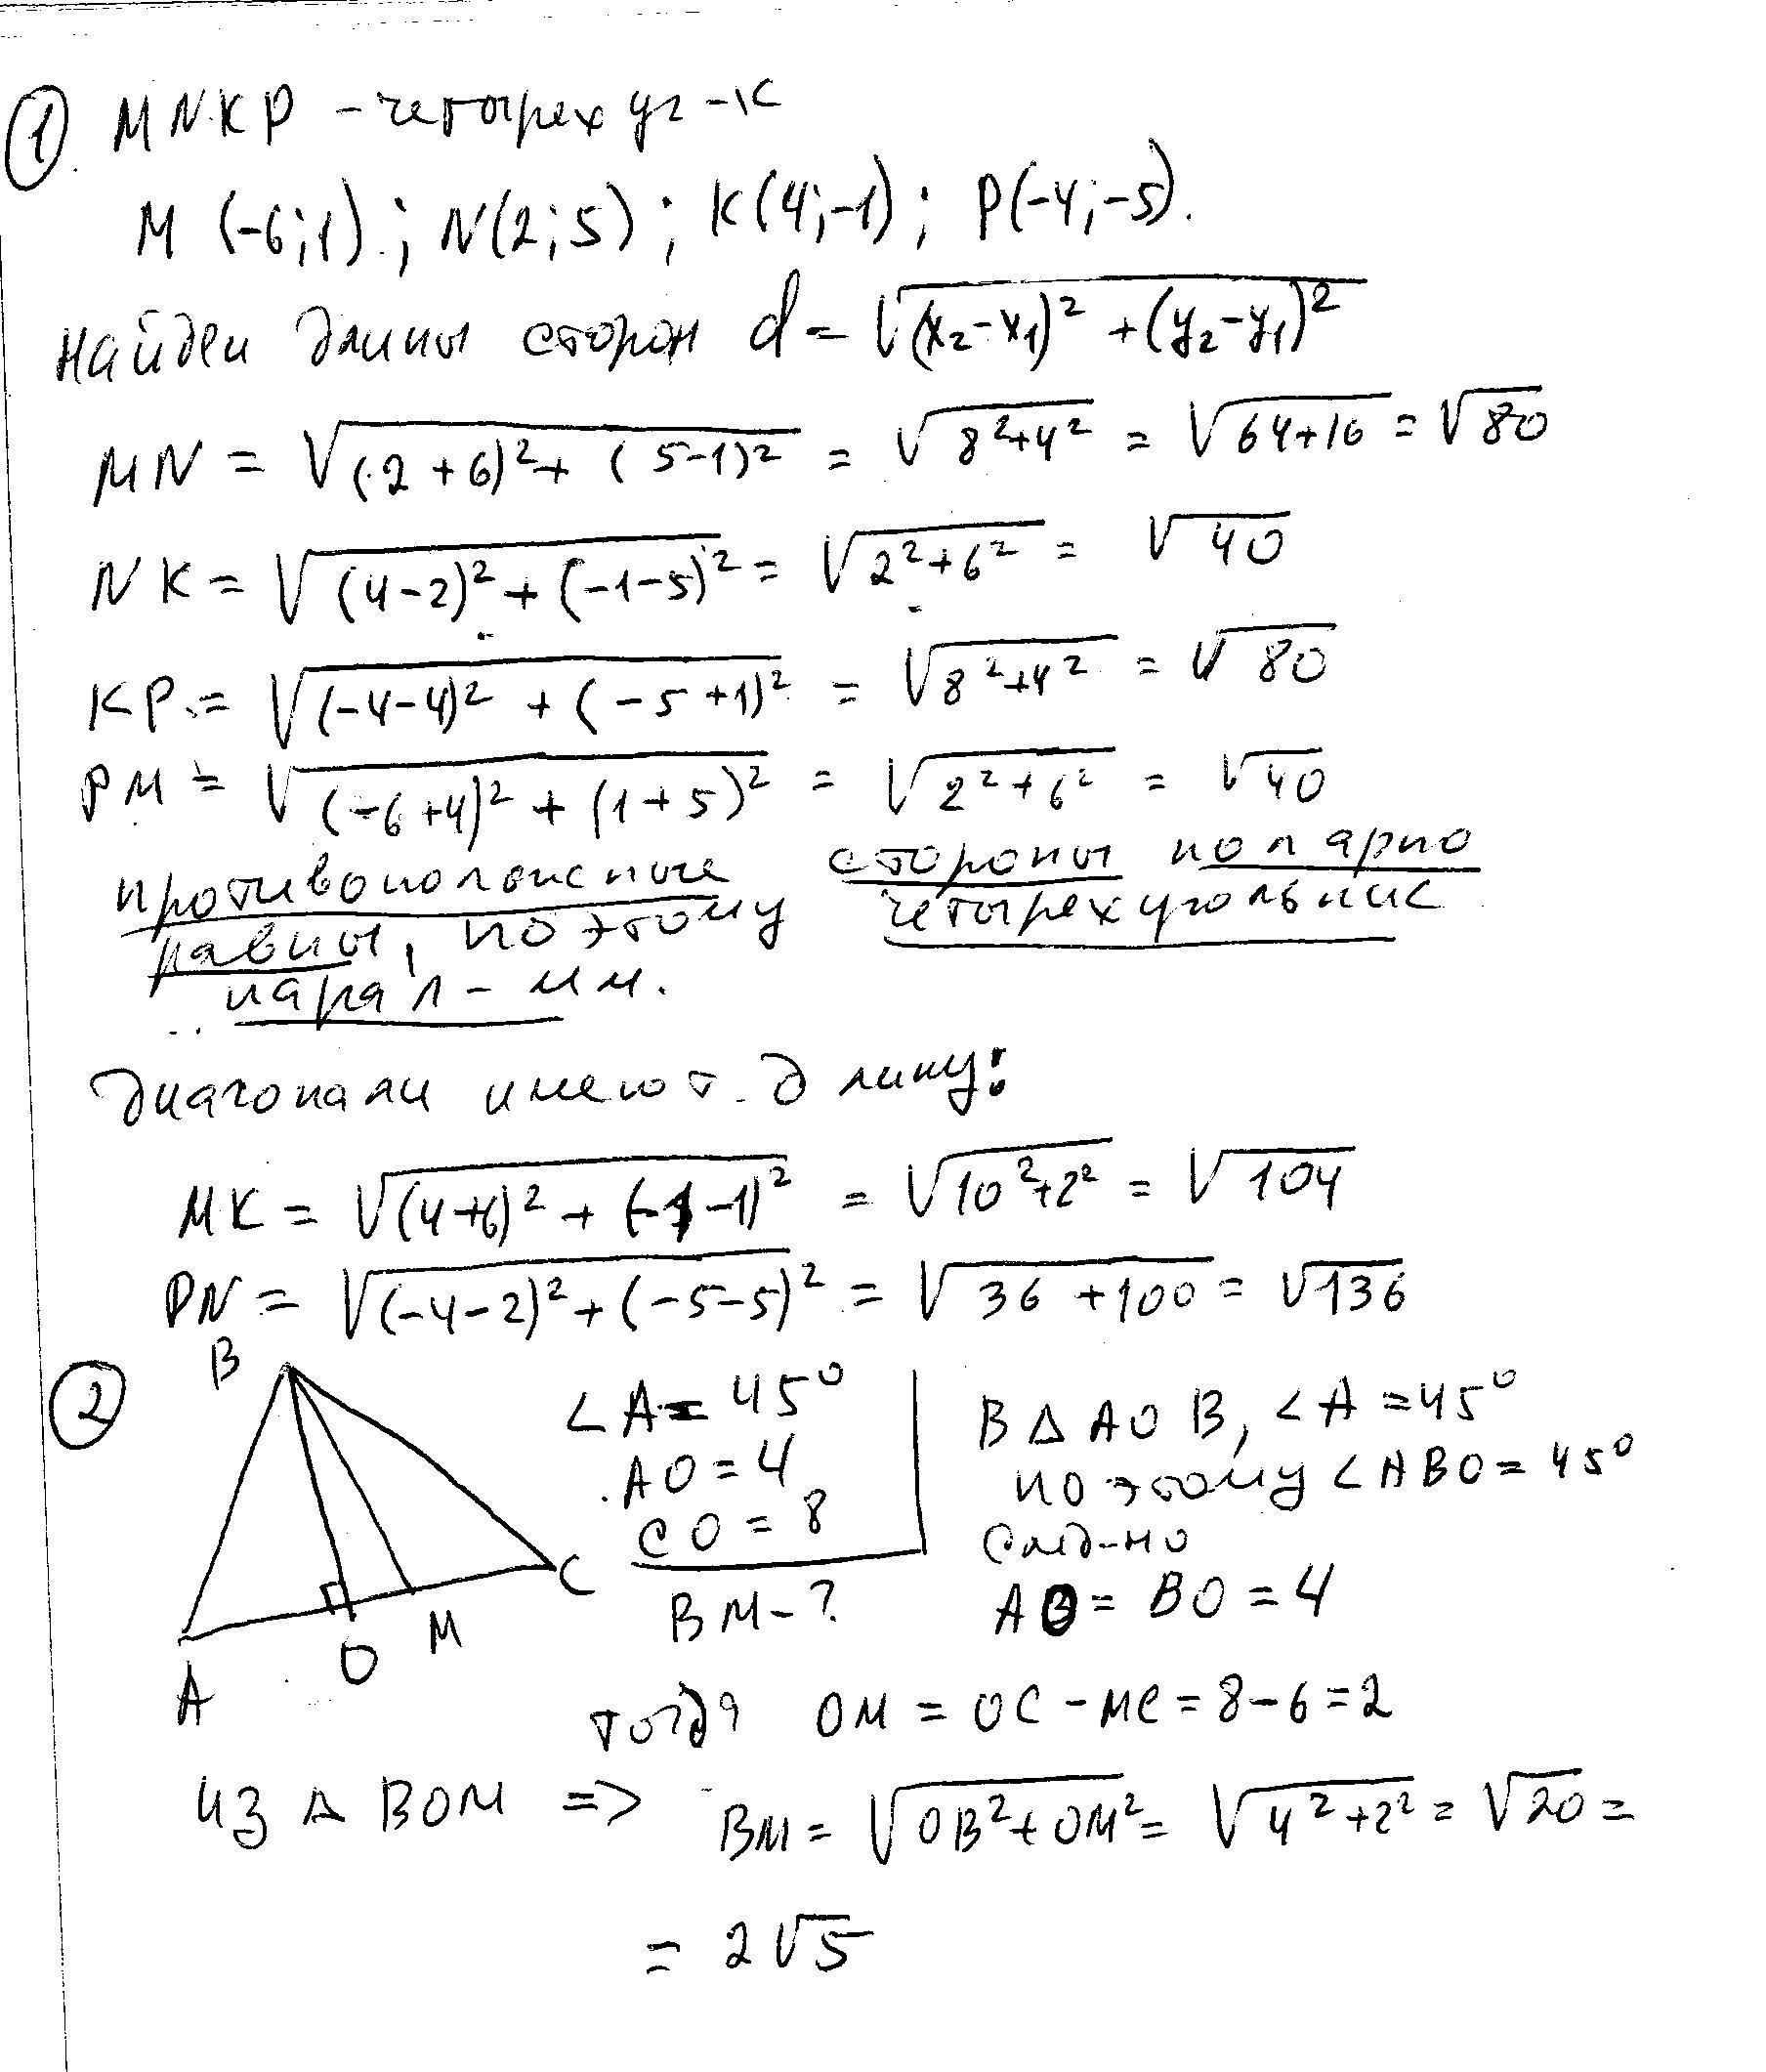 ① MNKP - четырехуг-к
M (-6;1); N(2;5); K(4;-1); P(-4;-5).
Найдем длины сторон d = √((x₂-x₁)² + (y₂-y₁)²)
MN = √((2+6)² + (5-1)²) = √(8²+4²) = √(64+16) = √80
NK = √((4-2)² + (-1-5)²) = √(2²+6²) = √40
KP = √((-4-4)² + (-5+1)²) = √(8²+4²) = √80
PM = √((-6+4)² + (1+5)²) = √(2²+6²) = √40
противоположные стороны попарно
равны, поэтому четырехугольник
парал-мм.
Диагонали имеют длину:
MK = √((4+6)² + (-1-1)²) = √(10²+2²) = √104
PN = √((-4-2)² + (-5-5)²) = √(36+100) = √136
②
B
A
O
M
C
∠A = 45°
AO = 4
CO = 8
BM - ?
В △AOB, ∠A = 45°
поэтому ∠ABO = 45°
след-но
AO = BO = 4
тогда OM = OC - MC = 8-6 = 2
из △BOM => BM = √(OB²+OM²) = √(4²+2²) = √20 =
= 2√5